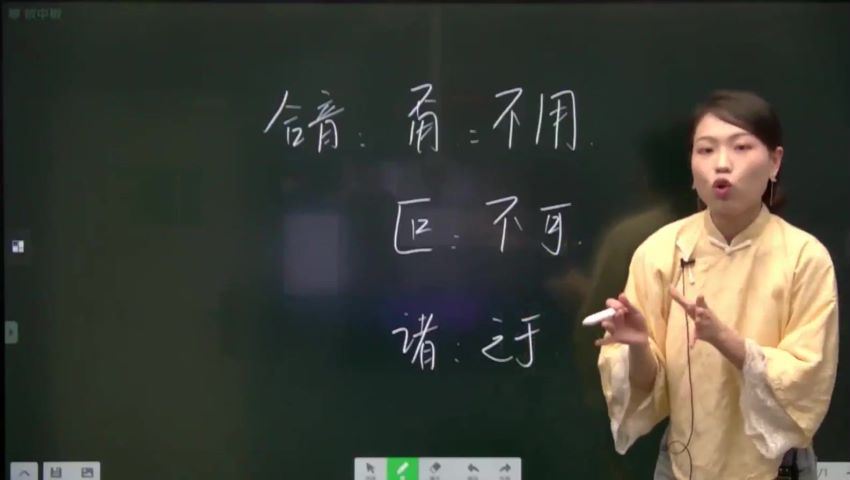 合音：甭：不用.
叵：不可.
诸：之于